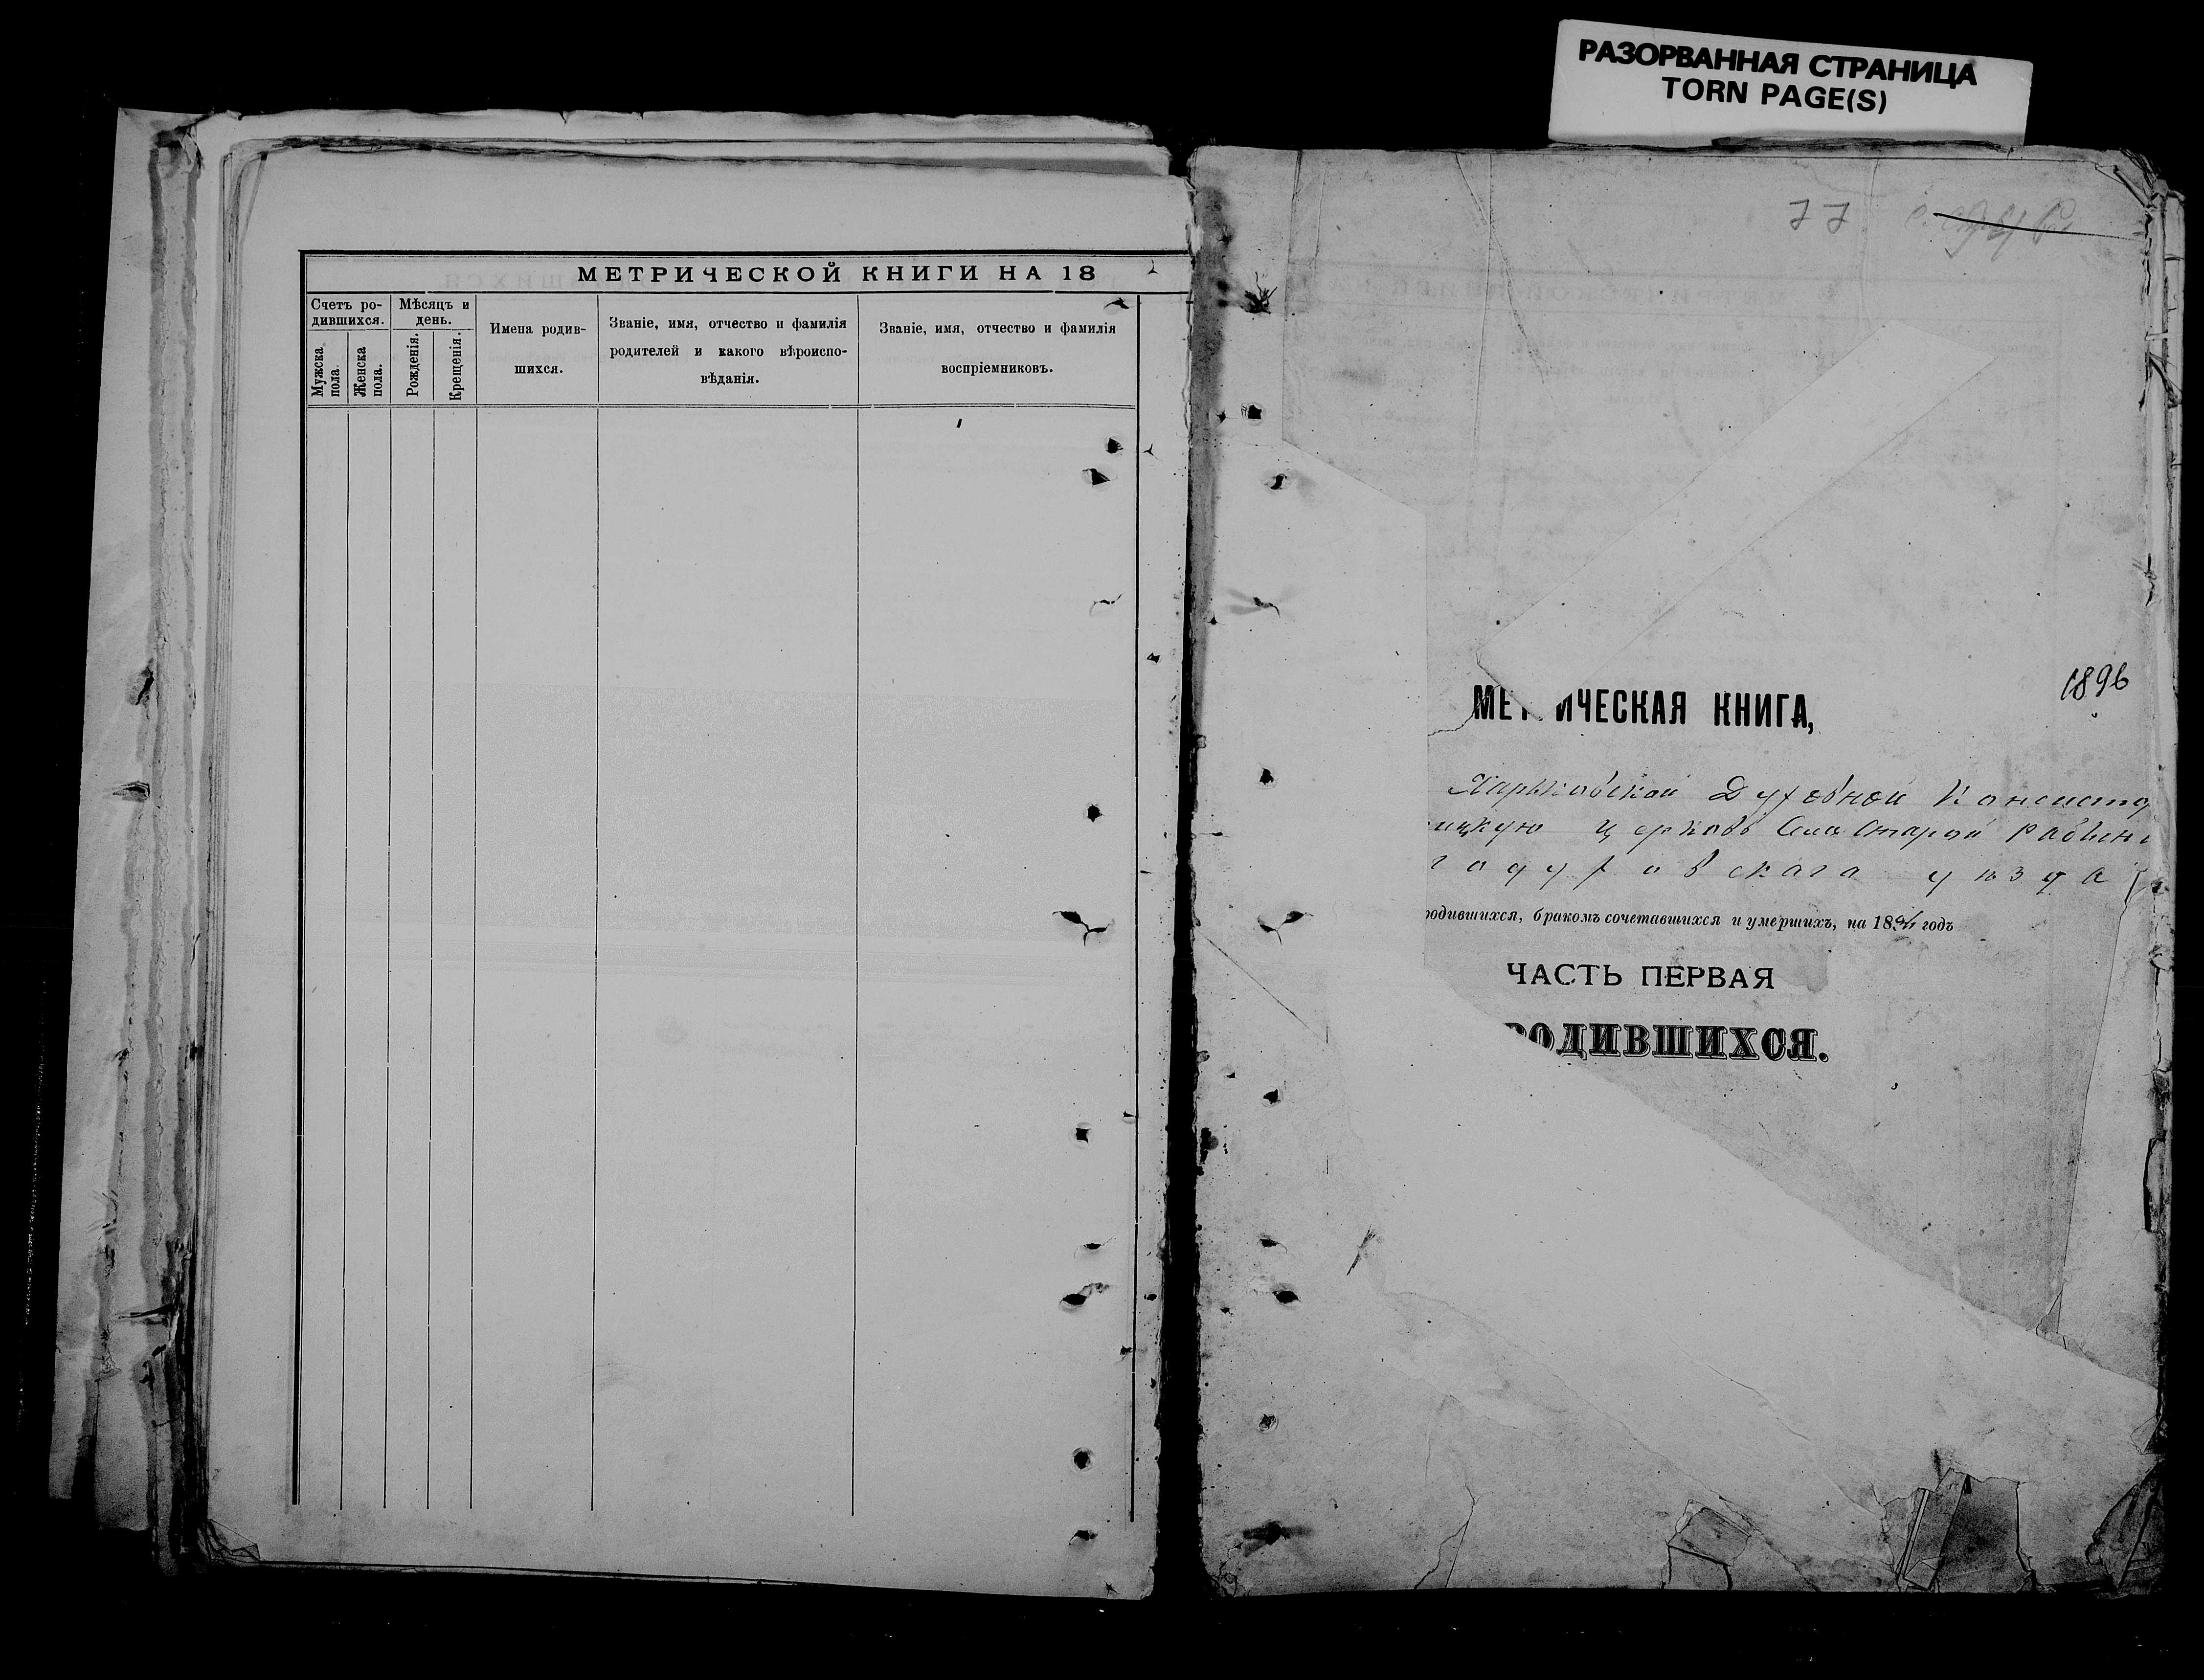 РАЗОРВАННАЯ СТРАНИЦА
TORN PAGE(S)
МЕТРИЧЕСКОЙ КНИГИ НА 18
Счетъ ро-
дившихся.
Мужска
пола.
Женска
пола.
Мѣсяцъ и
день.
Рожденія.
Крещенія.
Имена родив-
шихся.
Званіе, имя, отчество и фамилія
родителей и какого вѣроиспо-
вѣданія.
Званіе, имя, отчество и фамилія
воспріемниковъ.
77
1896
МЕТРИЧЕСКАЯ КНИГА,
Харьковской Духовной Консисто
ицкую церковь Села Старой Рябин
годуховскаго уѣзда
родившихся, бракомъ сочетавшихся и умершихъ, на 18 годъ
ЧАСТЬ ПЕРВАЯ
РОДИВШИХСЯ.